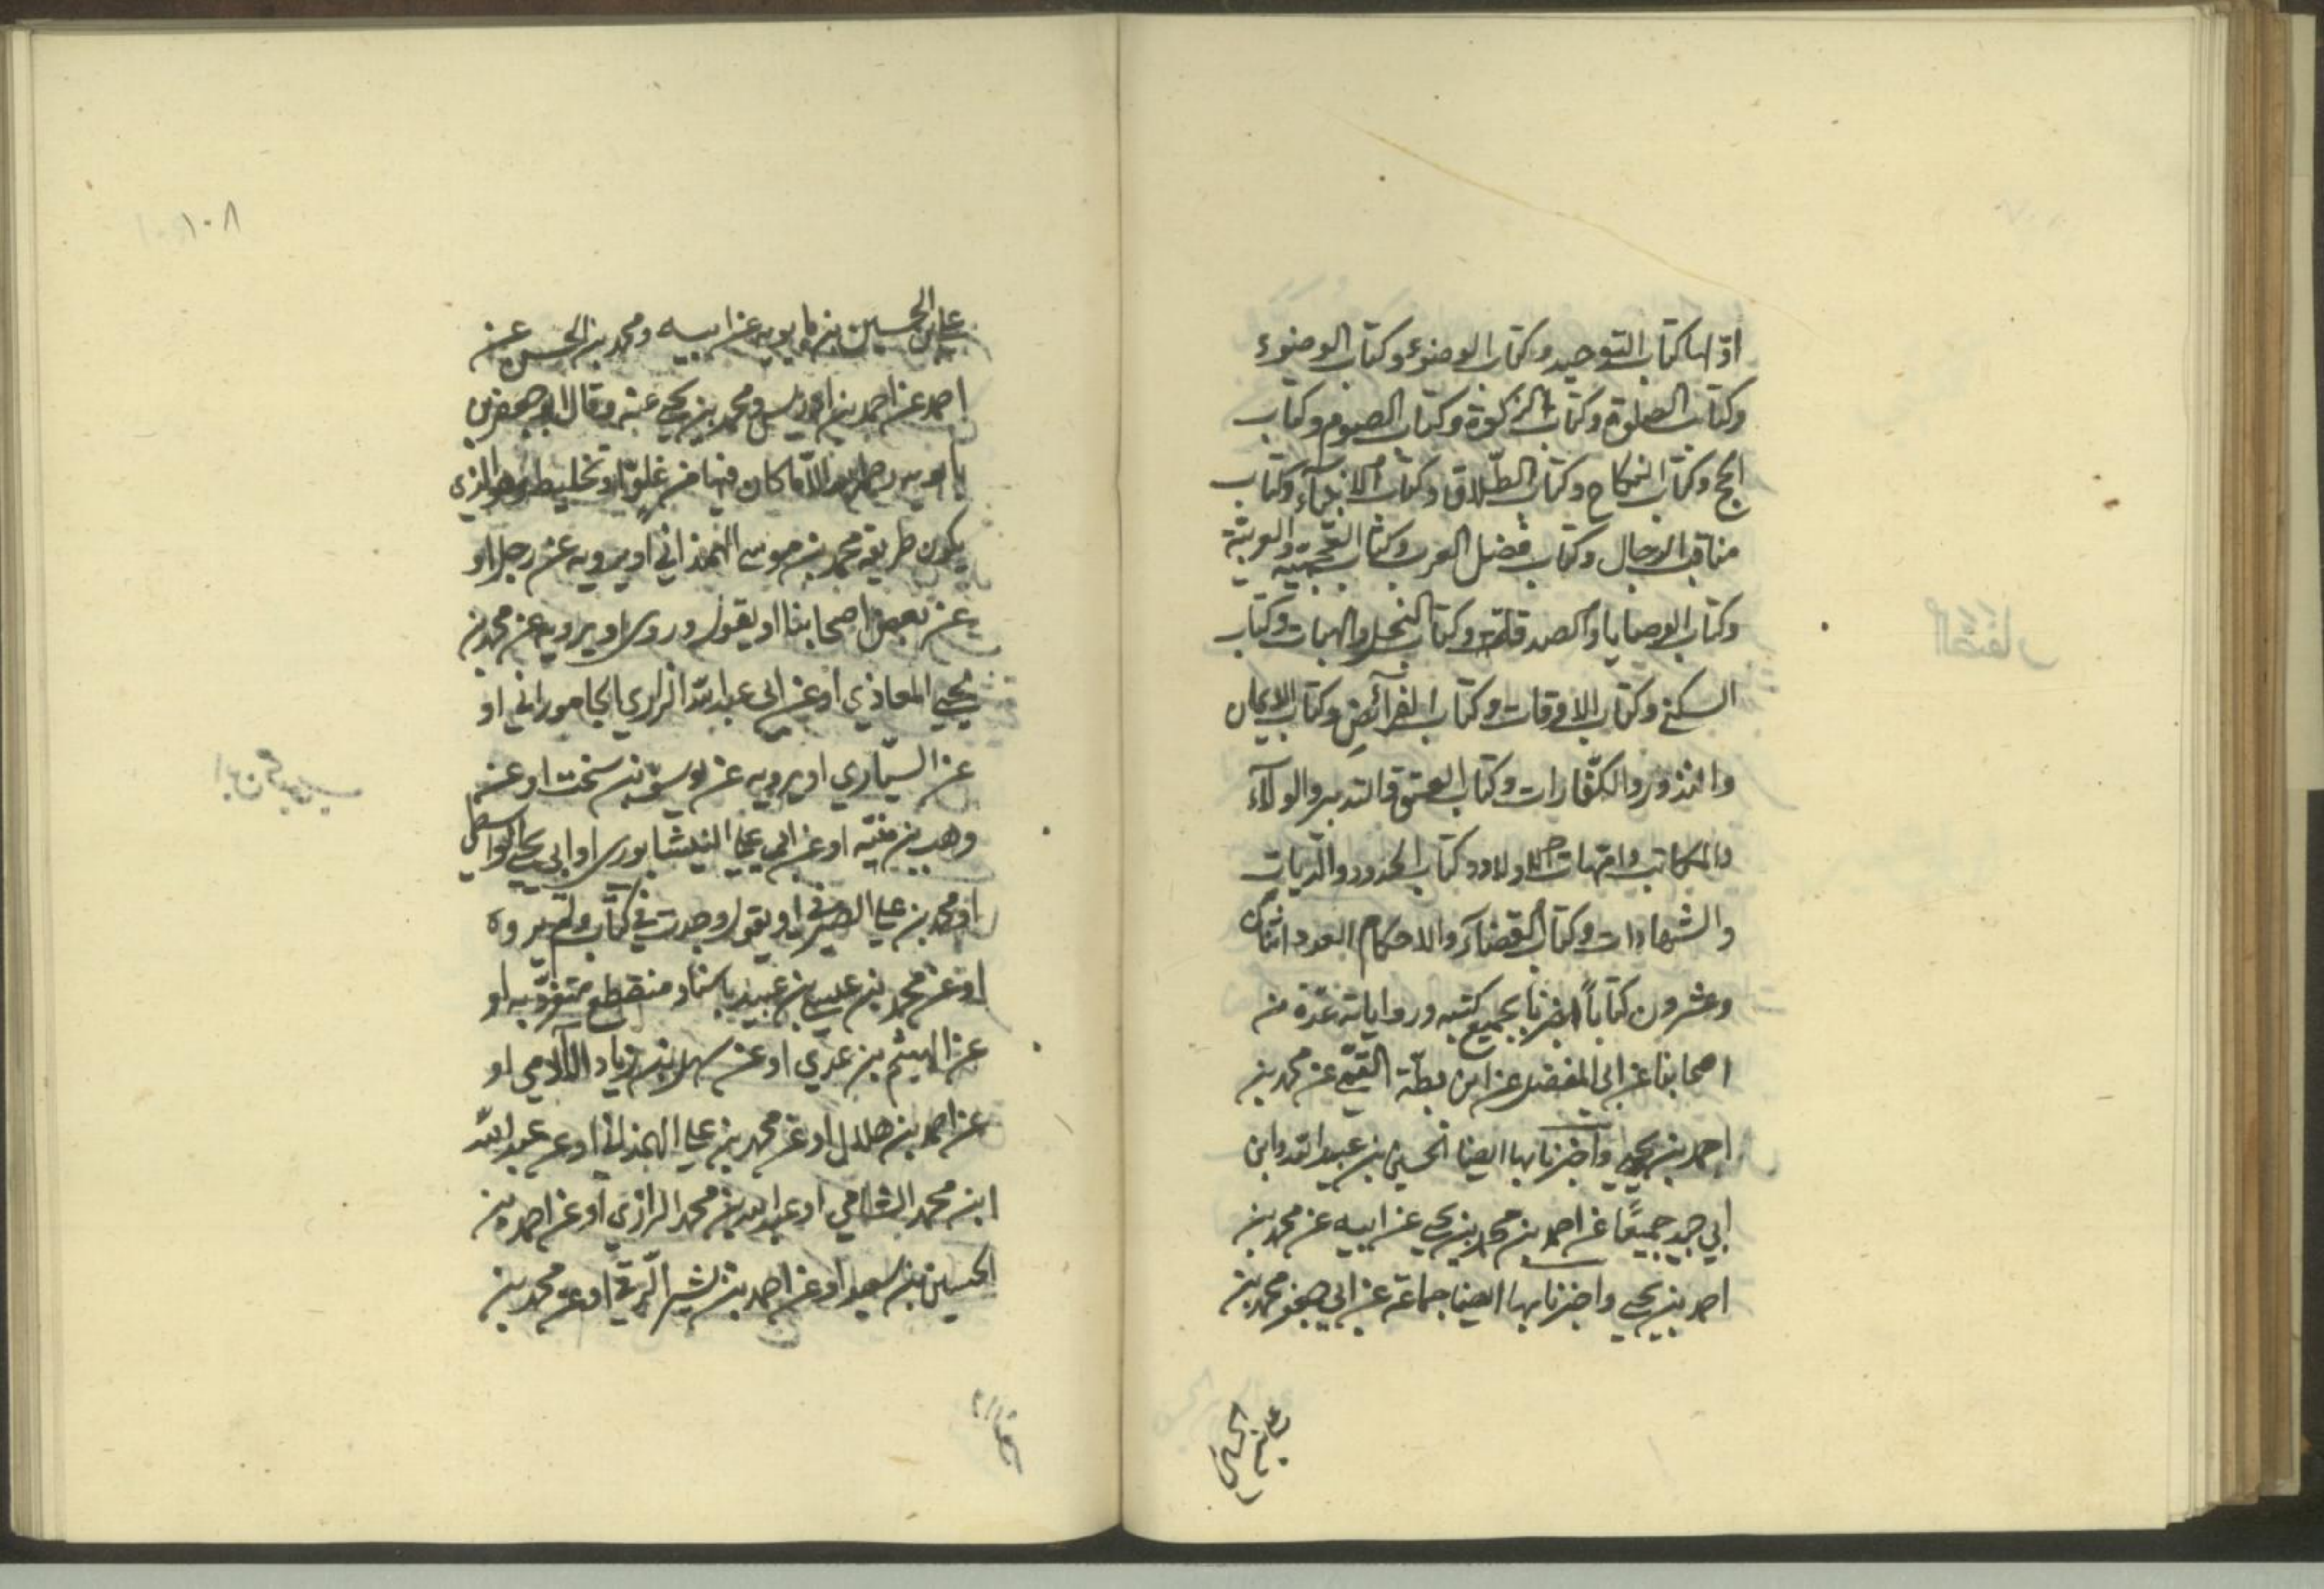 اوّلها كتاب التوحيد وكتاب الوضوء وكتاب الوضوء
وكتاب الصلوة وكتاب الزكوة وكتاب الصوم وكتاب
الحج وكتاب النكاح وكتاب الطلاق وكتاب الانبياء وكتاب
مناقب الرجال وكتاب فضل العرب وكتاب العجميّة والعربيّة
وكتاب الوصايا والصدقات وكتاب النحل والهبات وكتاب
السكنى وكتاب الاوقات وكتاب الفرائض وكتاب الايمان
والنذور والكفّارات وكتاب العتق والتدبير والولاء
والمكاتب وامّهات الاولاد وكتاب الحدود والديات
والشهادات وكتاب القضاء والاحكام العدد اثنان
وعشرون كتاباً اخبرنا بجميع كتبه ورواياته عدّة من
اصحابنا عن ابي المفضل عن ابن بطّة القمّي عن محمد بن
احمد بن يحيى واخبرنا بها ايضا الحسين بن عبيد الله وابن
ابي جيد جميعًا عن احمد بن محمد بن يحيى عن ابيه عن محمد بن
احمد بن يحيى واخبرنا بها ايضا جماعة عن ابي جعفر محمد بن
علي بن الحسين
١٠٨
علي بن الحسين بن بابويه عن ابيه ومحمد بن الحسن عن
احمد عن احمد بن ادريس ومحمد بن يحيى عنه وقال ابو جعفر بن
بابويه الا ما كان فيها من غلوّ او تخليط وهو الذي
يكون طريقه محمد بن موسى الهمذاني او يرويه عن رجل او
عن بعض اصحابنا او يقول وروى او يرويه عن محمد بن
يحيى المعاذي او عن ابي عبد الله الرازي الجاموراني او
عن السيّاري او يرويه عن يوسف بن سخت او عن
وهب بن منبّه او عن ابي علي النيشابوري او ابي يحيى الواسطي
او محمد بن علي الصيرفي او يقول وجدت في كتاب ولم يروه
او عن محمد بن عيسى بن عبيد باسناد منقطع متفرد به او
عن الهيثم بن عدي او عن سهل بن زياد الآدمي او
عن احمد بن هلال او عن محمد بن علي الهمذاني او عن عبد الله
ابن محمد الشامي او عبد الله بن محمد الرازي او عن احمد بن
الحسين بن سعيد او عن احمد بن بشير الرقي او عن محمد بن